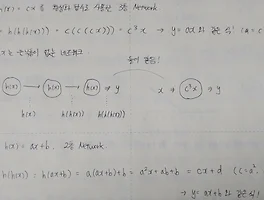 h(x) = cx 를 활성화 함수로 사용한 3층 Network
= h(h(h(x))) = c(c(cx))) = c³x → y = ax 와 같은 식! (a = c
은닉층이 없는 네트워크
동일 같음!
h(x) → h(x) → h(x) → y x → c³x → y
h(x) h(h(x)) h(h(h(x)))
h(x) = ax + b, 2층 Network.
h(h(x)) = h(ax+b) = a(ax+b)+b = a²x + ab + b = cx + d (c = a²,
→ y = ax + b 와 같은 식!